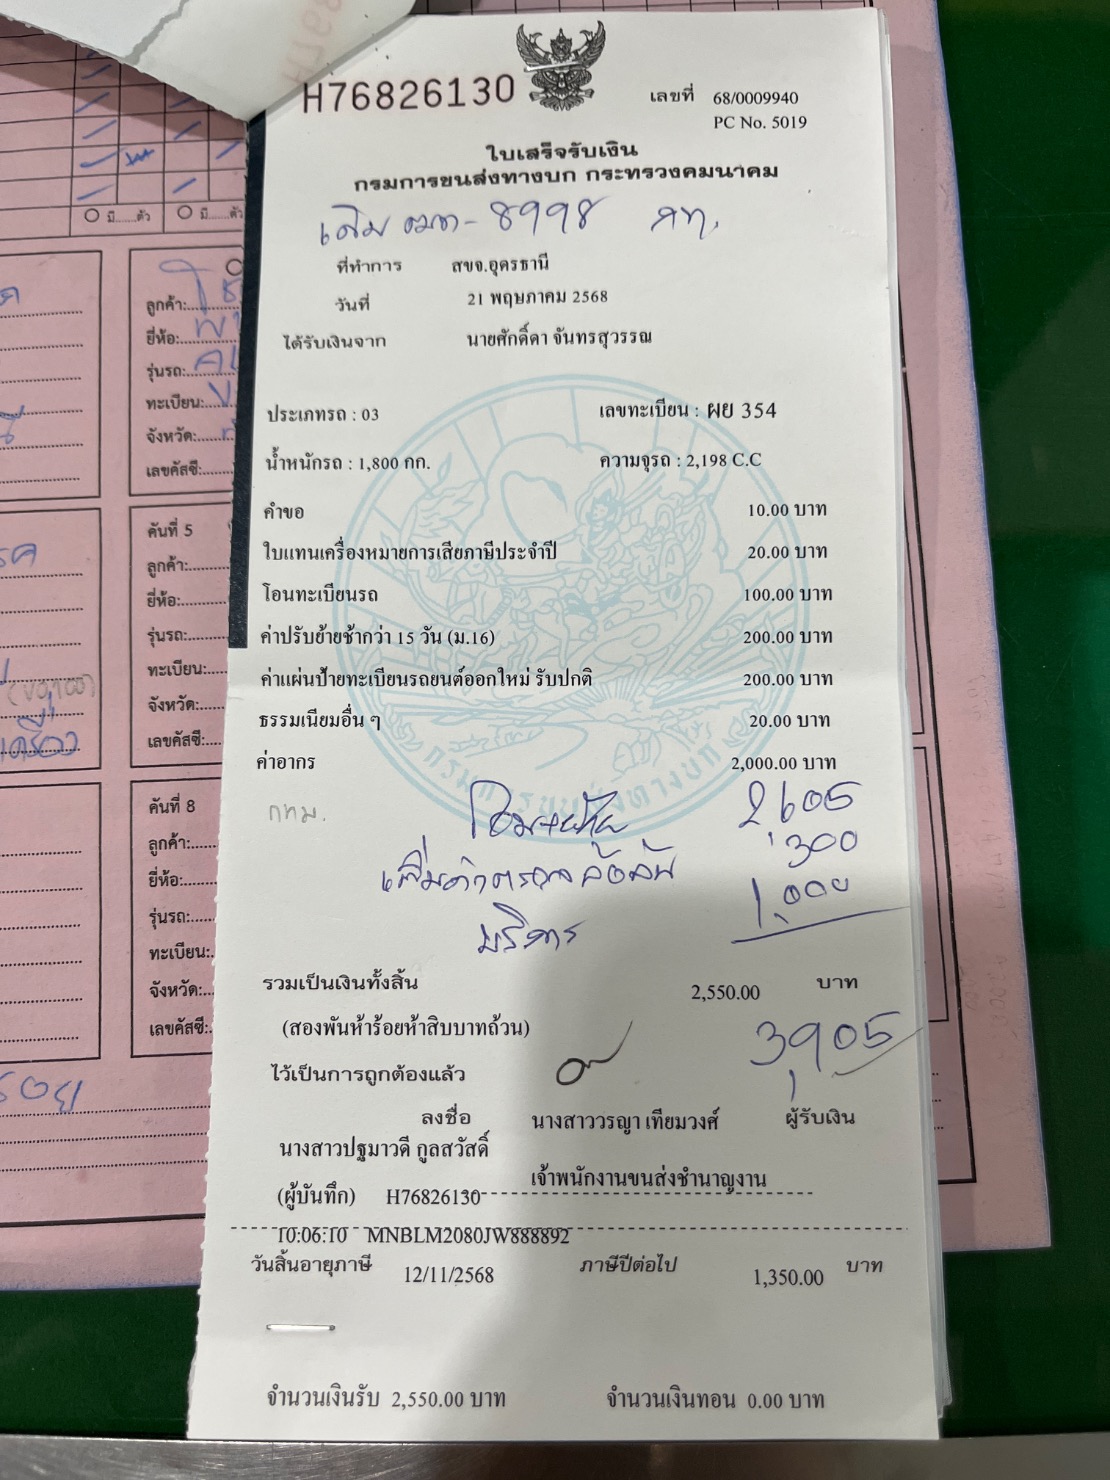 H76826130
เลขที่ 68/0009940
PC No. 5019
ใบเสร็จรับเงิน
กรมการขนส่งทางบก กระทรวงคมนาคม
เดิม 8998 กท.
ที่ทำการ สขจ.อุดรธานี
วันที่ 21 พฤษภาคม 2568
ได้รับเงินจาก นายศักดิ์ดา จันทรสุวรรณ
ประเภทรถ : 03 เลขทะเบียน : ผย 354
น้ำหนักรถ : 1,800 กก. ความจุรถ : 2,198 C.C
คำขอ 10.00 บาท
ใบแทนเครื่องหมายการเสียภาษีประจำปี 20.00 บาท
โอนทะเบียนรถ 100.00 บาท
ค่าปรับย้ายช้ากว่า 15 วัน (ม.16) 200.00 บาท
ค่าแผ่นป้ายทะเบียนรถยนต์ออกใหม่ รับปกติ 200.00 บาท
ธรรมเนียมอื่น ๆ 20.00 บาท
ค่าอากร 2,000.00 บาท
กรมการขนส่งทางบก
กทม. 2,605
300
บริการ 1,000
รวมเป็นเงินทั้งสิ้น 2,550.00 บาท
(สองพันห้าร้อยห้าสิบบาทถ้วน)
3,905
ไว้เป็นการถูกต้องแล้ว
ลงชื่อ นางสาววรญา เทียมวงศ์ ผู้รับเงิน
นางสาวปฐมาวดี กูลสวัสดิ์
เจ้าพนักงานขนส่งชำนาญงาน
(ผู้บันทึก) H76826130
10:06:10 MNBLM2080JW888892
วันสิ้นอายุภาษี 12/11/2568 ภาษีปีต่อไป 1,350.00 บาท
จำนวนเงินรับ 2,550.00 บาท จำนวนเงินทอน 0.00 บาท
มี......ตัว
มี......ตัว
ลูกค้า:
ยี่ห้อ:
รุ่นรถ:
ทะเบียน:
จังหวัด:
เลขคัสซี:
คันที่ 5
ลูกค้า:
ยี่ห้อ:
รุ่นรถ:
ทะเบียน:
จังหวัด:
เลขคัสซี:
คันที่ 8
ลูกค้า:
ยี่ห้อ:
รุ่นรถ:
ทะเบียน:
จังหวัด:
เลขคัสซี: